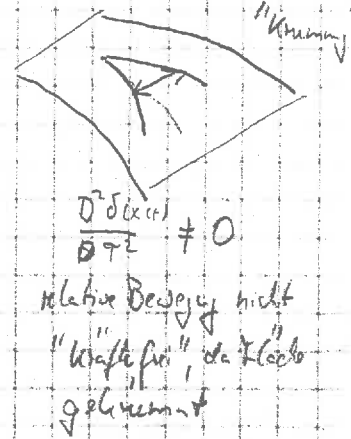 "Krümmung
D² δ(x(τ))
D τ² ≠ 0
relative Bewegung nicht
"kräftefrei", da Fläche
gekrümmt